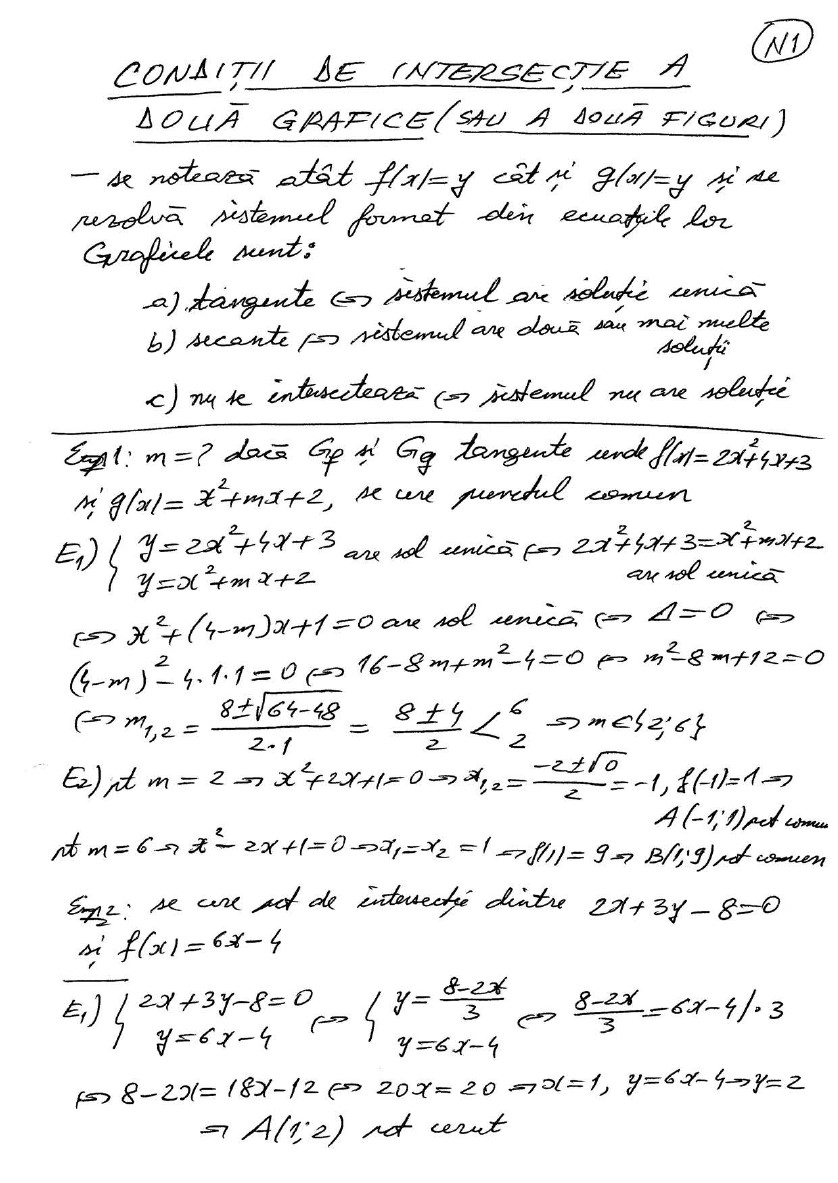 N1
CONDIȚII DE INTERSECȚIE A
DOUĂ GRAFICE (SAU A DOUĂ FIGURI)
— se notează atât f(x)=y cât și g(x)=y și se
rezolvă sistemul format din ecuațiile lor
Graficele sunt:
a) tangente ⇔ sistemul are soluție unică
b) secante ⇔ sistemul are două sau mai multe
soluții
c) nu se intersectează ⇔ sistemul nu are soluție
Exp1: m=? dacă Gf și Gg tangente unde f(x)=2x²+4x+3
și g(x)=x²+mx+2, se cere punctul comun
E₁) { y=2x²+4x+3 are sol unică ⇔ 2x²+4x+3=x²+mx+2
y=x²+mx+2 are sol unică
⇔ x²+(4-m)x+1=0 are sol unică ⇔ Δ=0 ⇔
(4-m)²-4·1·1=0 ⇔ 16-8m+m²-4=0 ⇔ m²-8m+12=0
⇔ m₁,₂ = (8±√(64-48))/(2·1) = (8±4)/2 < 6 2 ⇒ m∈{2;6}
E₂) pt m=2 ⇒ x²+2x+1=0 ⇒ x₁,₂=(-2±√0)/2=-1, f(-1)=1 ⇒
A(-1;1) pct comun
pt m=6 ⇒ x²-2x+1=0 ⇒ x₁=x₂=1 ⇒ f(1)=9 ⇒ B(1;9) pct comun
Exp2: se cere pct de intersecție dintre 2x+3y-8=0
și f(x)=6x-4
E₁) { 2x+3y-8=0 y=6x-4 ⇔ { y=(8-2x)/3 y=6x-4 ⇔ (8-2x)/3=6x-4/·3
⇔ 8-2x=18x-12 ⇔ 20x=20 ⇒ x=1, y=6x-4 ⇒ y=2
⇒ A(1;2) pct cerut